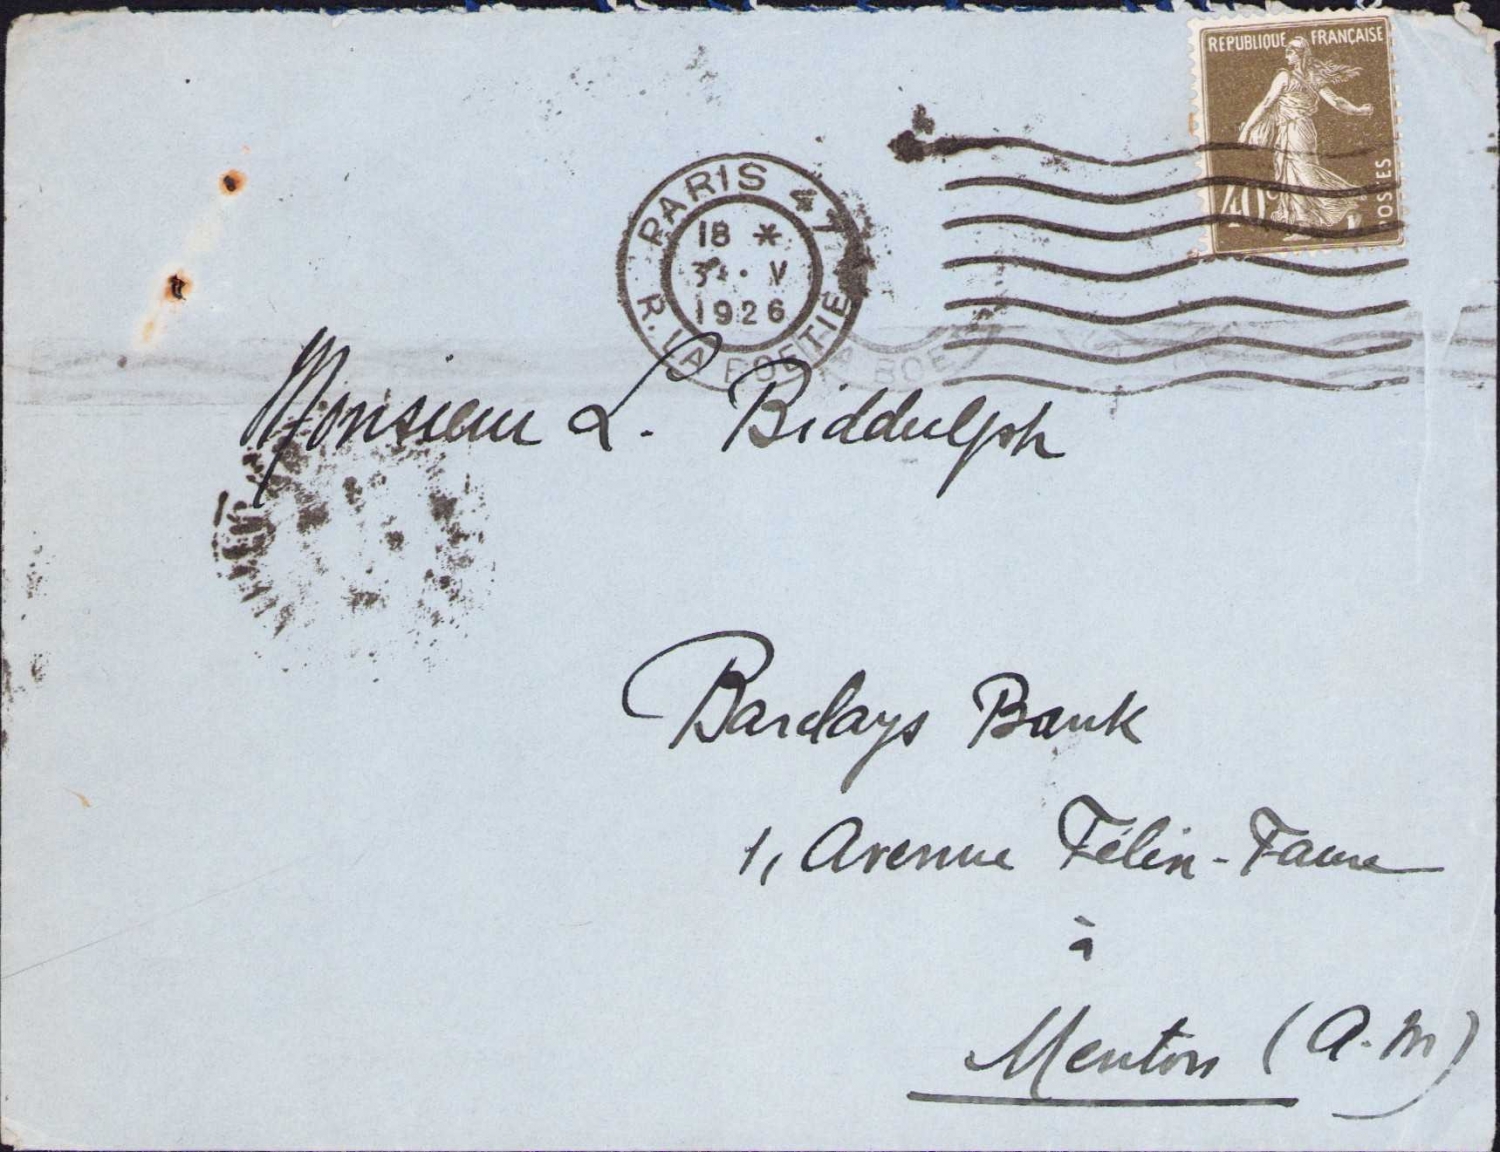 REPUBLIQUE FRANÇAISE
40c
POSTES
PARIS 47
18 *
V
1926
R. LA BOETIE
BOE
Monsieur L. Biddulph
Barclays Bank
1, Avenue Félix-Faure
à
Menton (A.M)